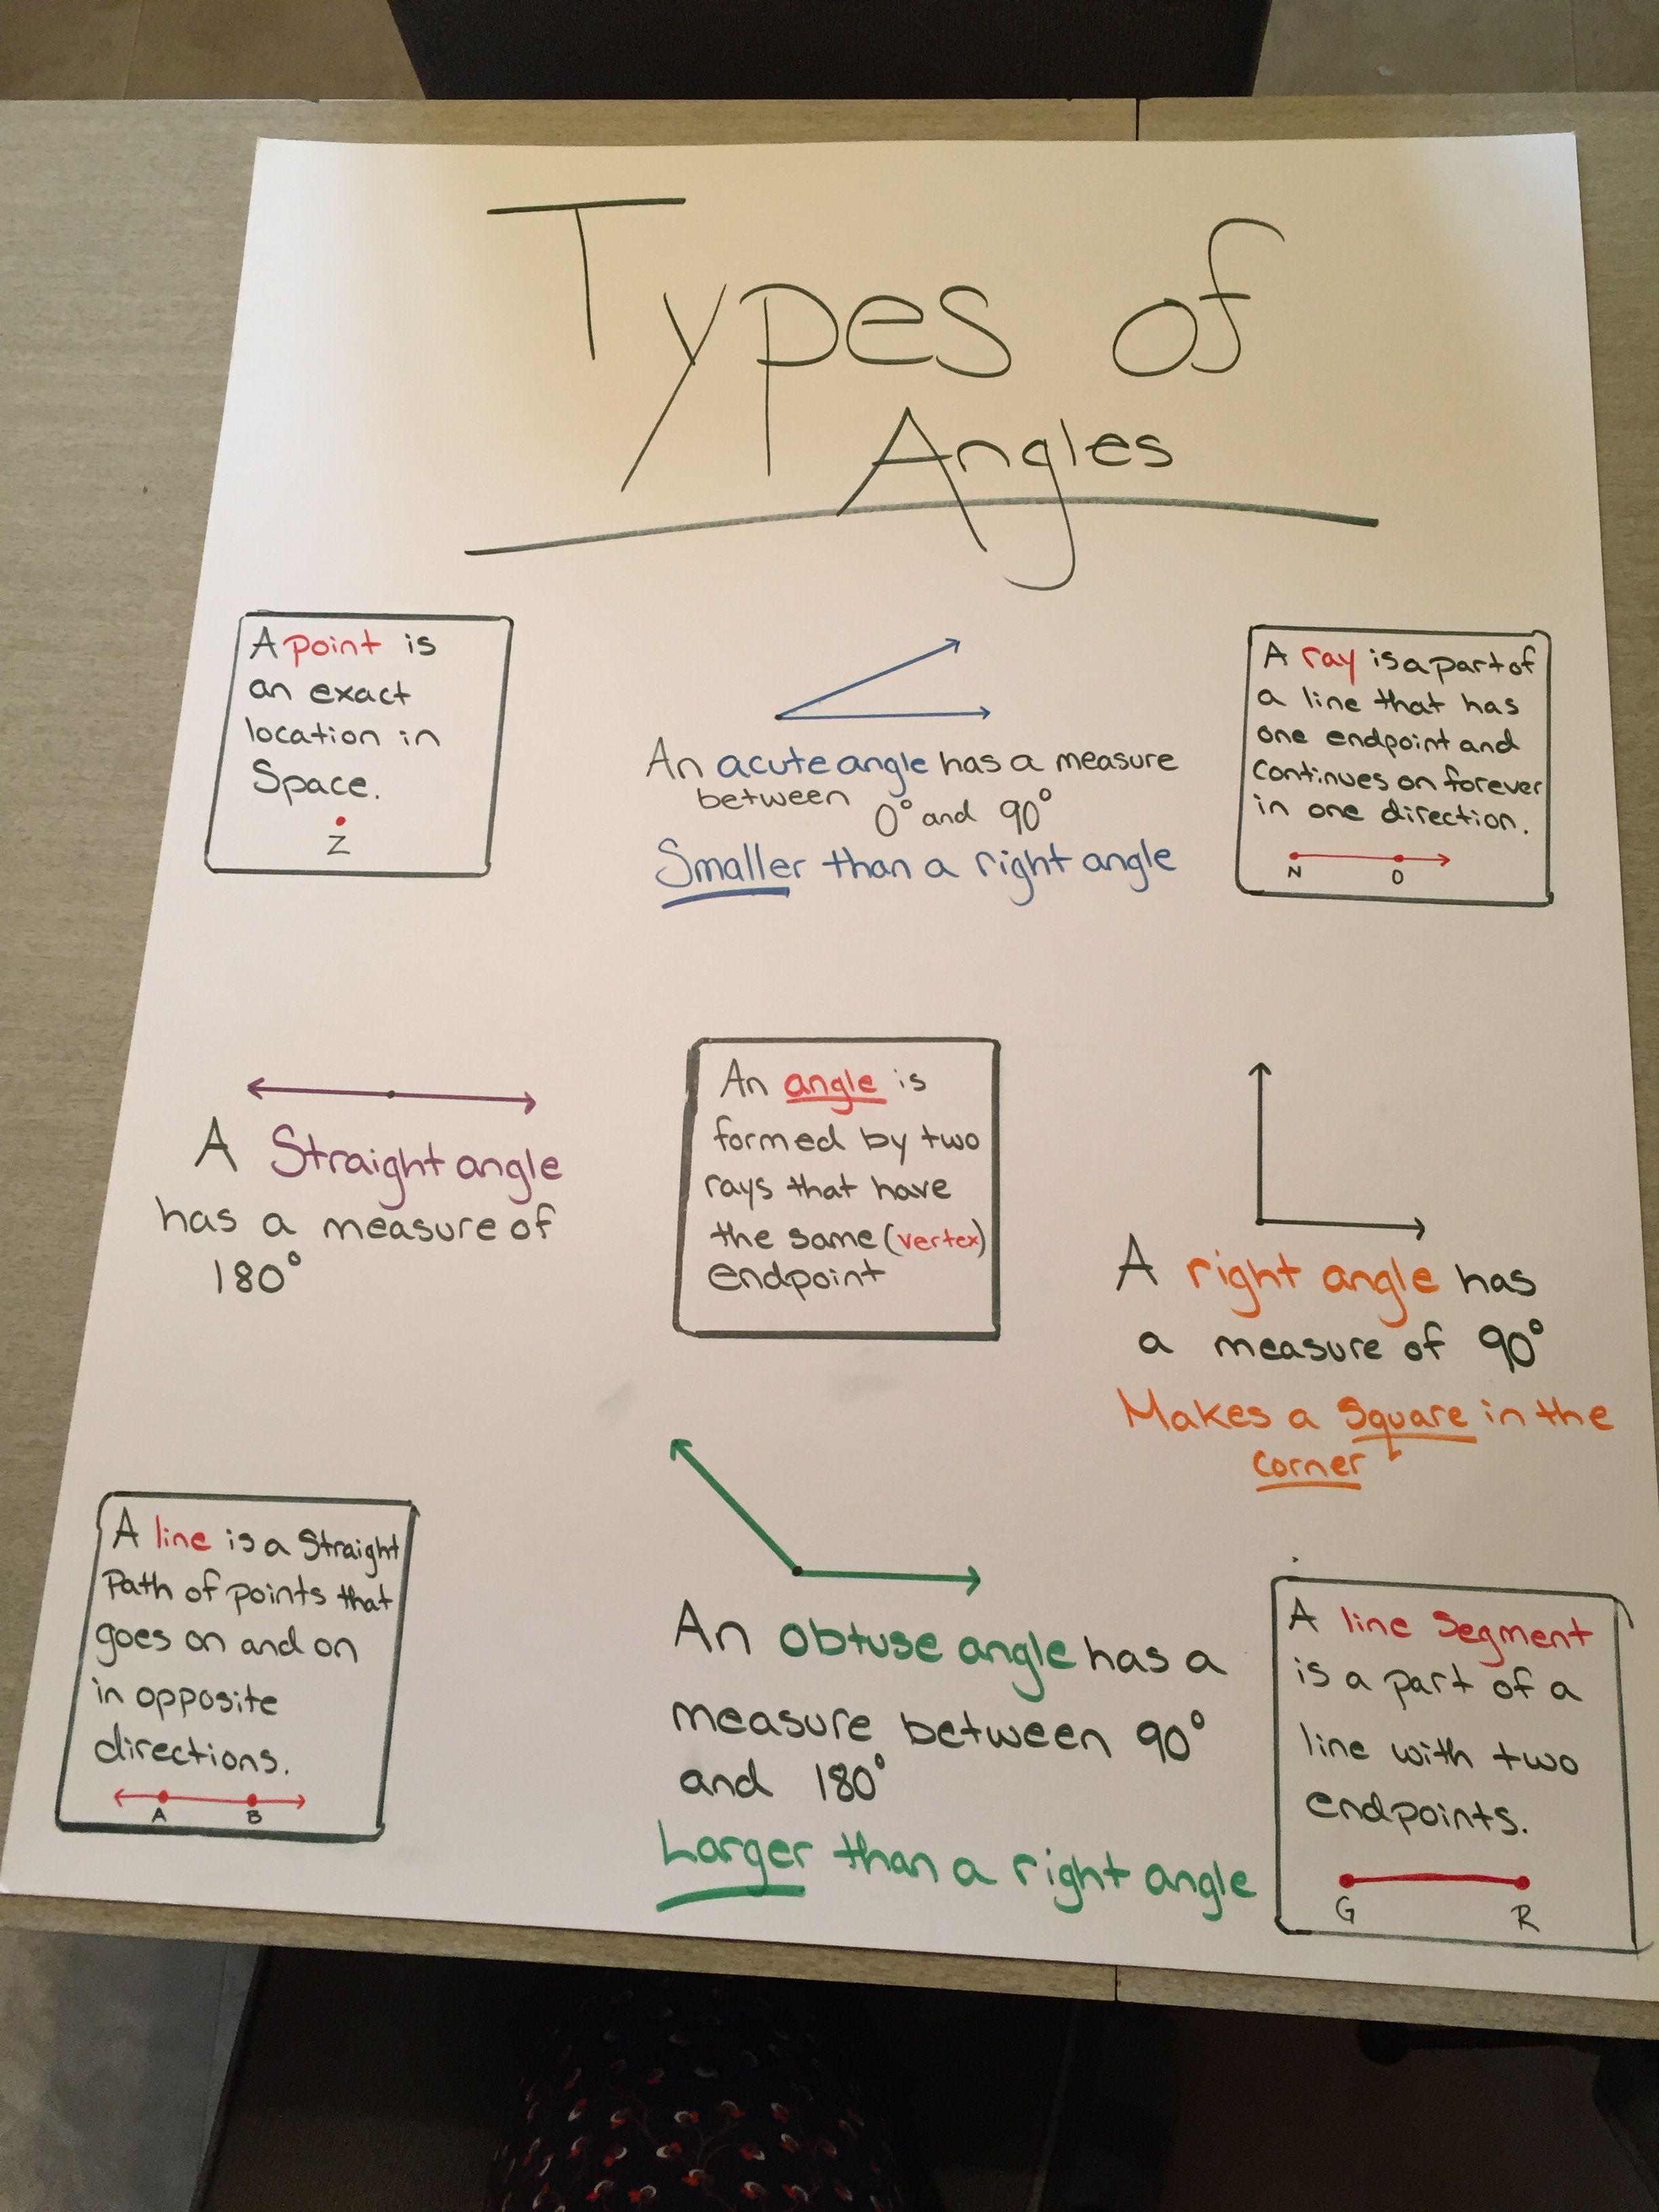 Types of
Angles
A point is
an exact
location in
Space.
Z
An acute angle has a measure
between 0° and 90°
Smaller than a right angle
A ray is a part of
a line that has
one endpoint and
Continues on forever
in one direction.
N O
A Straight angle
has a measure of
180°
An angle is
formed by two
rays that have
the same (vertex)
endpoint
A right angle has
a measure of 90°
Makes a Square in the
Corner
A line is a Straight
Path of points that
goes on and on
in opposite
directions.
A B
An obtuse angle has a
measure between 90°
and 180°
Larger than a right angle
A line Segment
is a part of a
line with two
endpoints.
G R